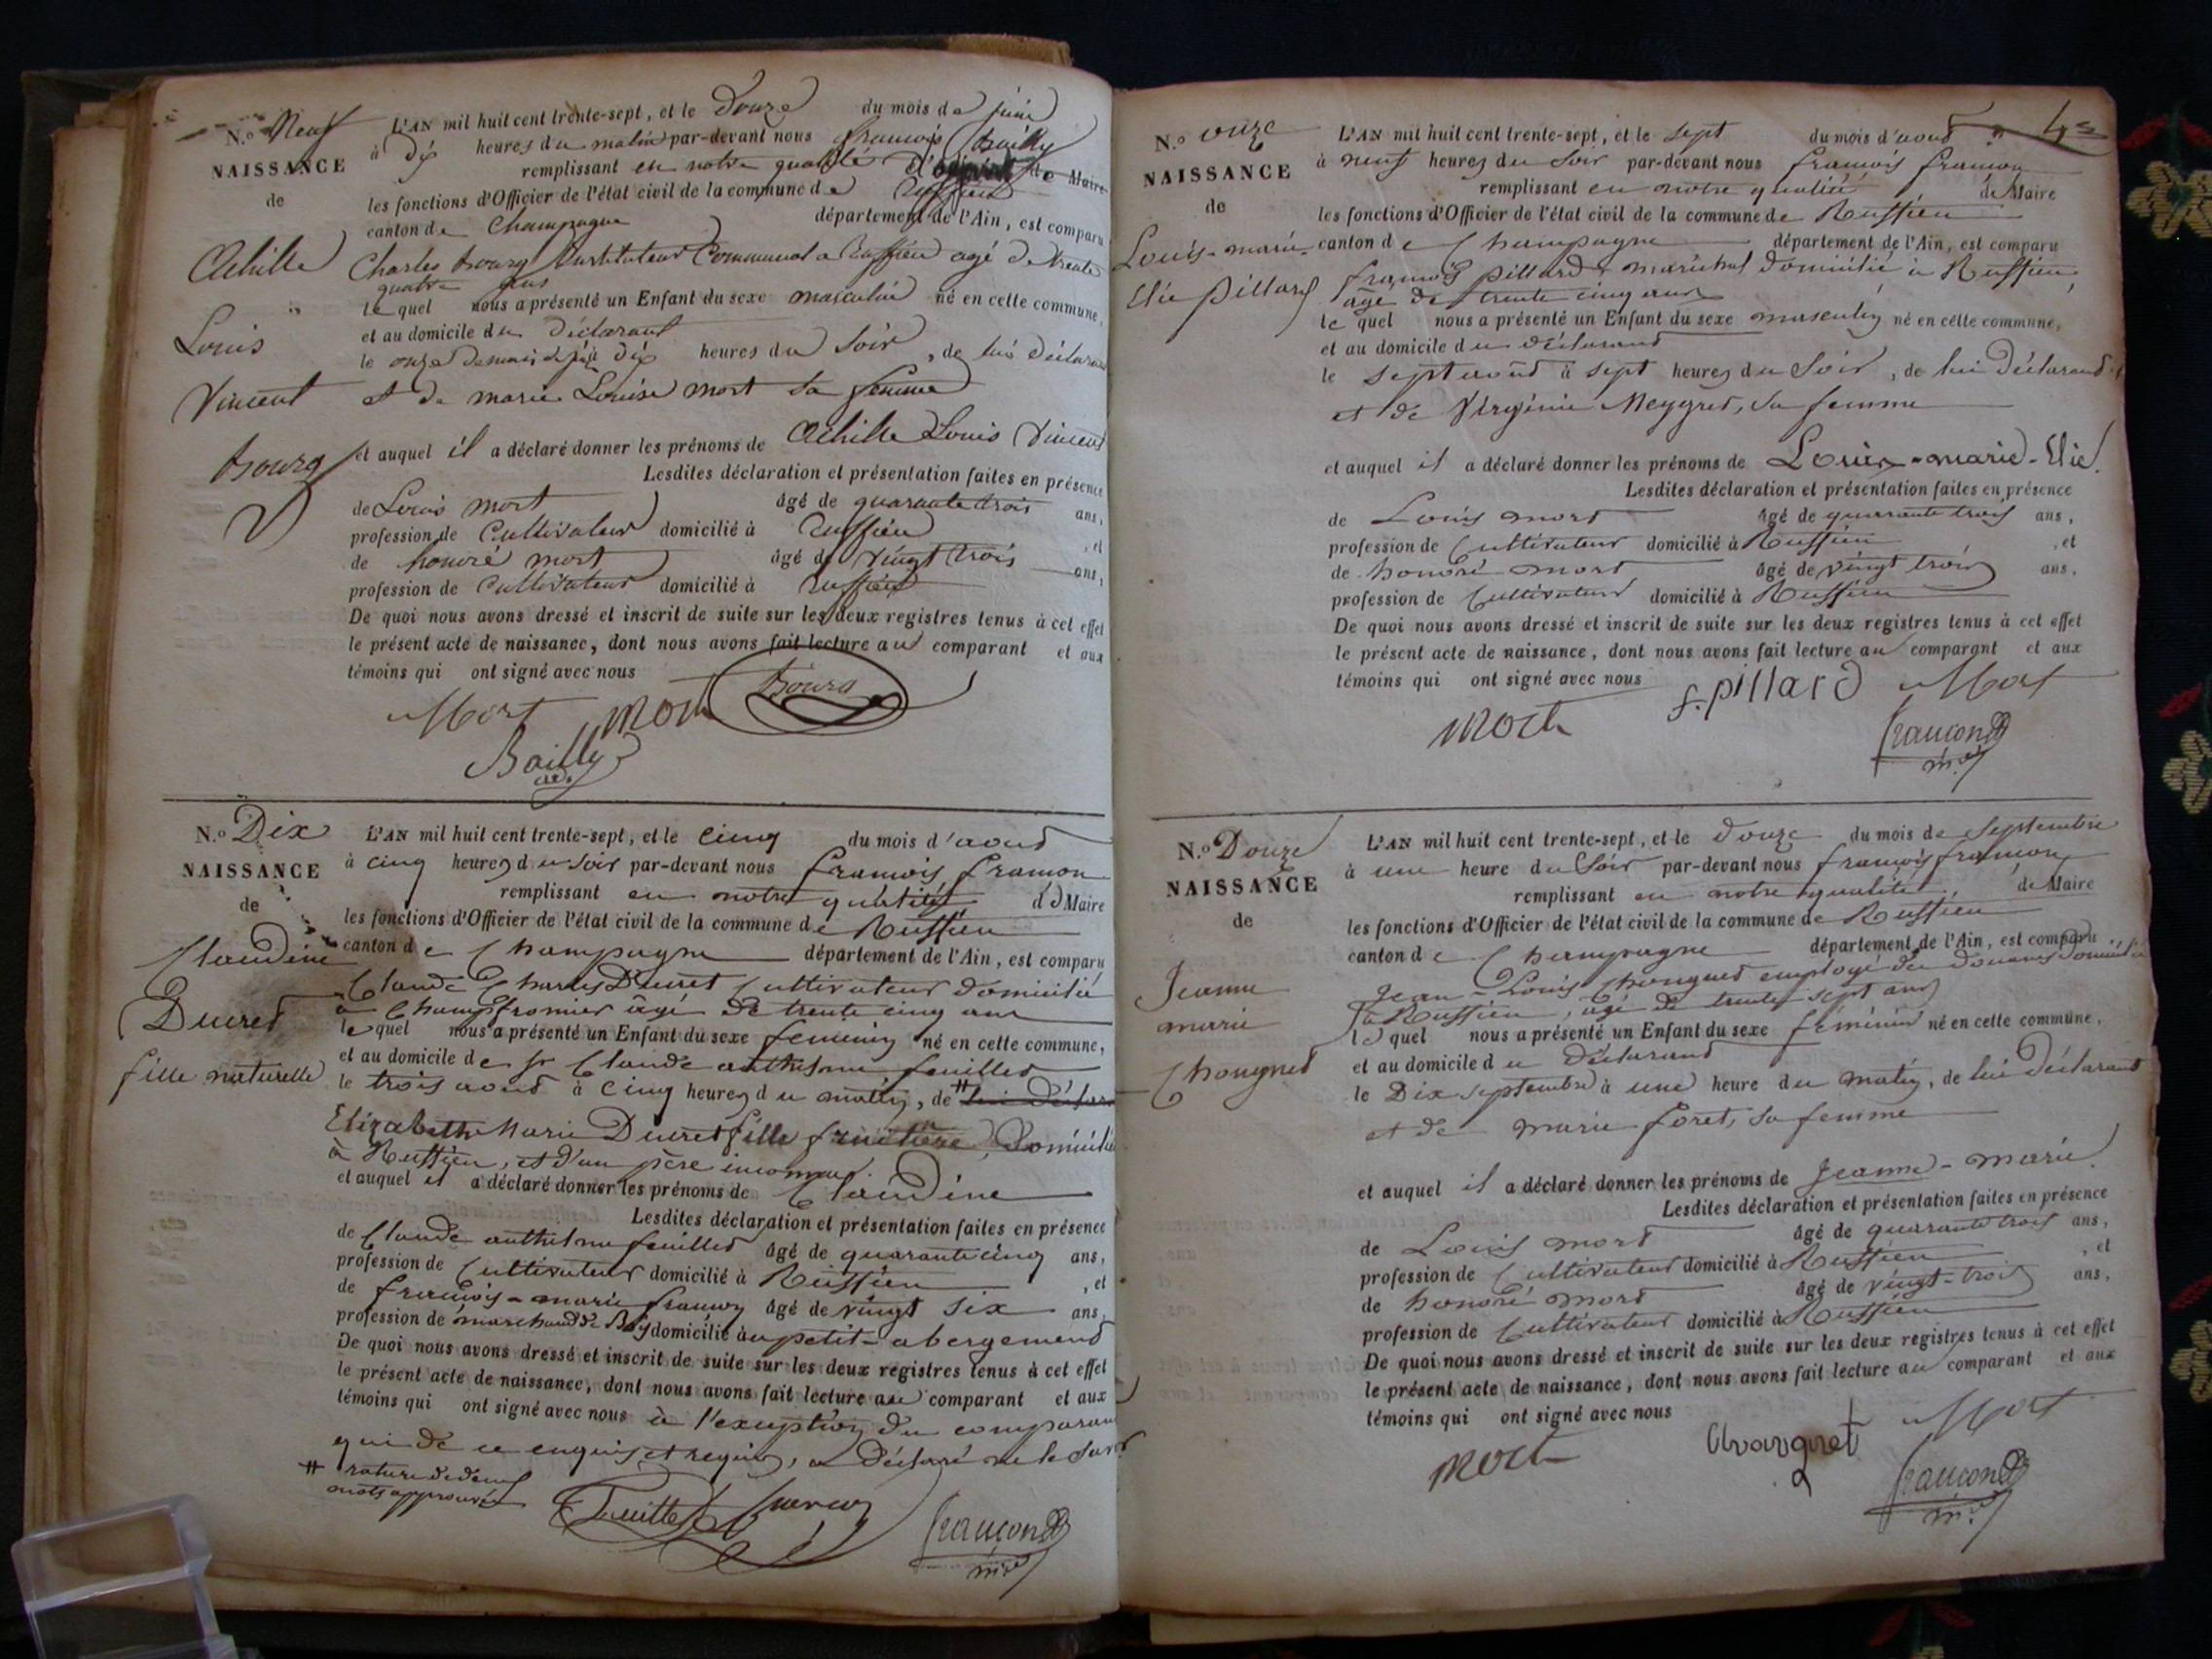 N.o Neuf
NAISSANCE
de
Achille
Louis
Vincent
Bourg
L'AN mil huit cent trente-sept, et le Douze du mois de juin
à dix heures du matin par-devant nous françois Bailly
remplissant en notre qualité d' de Maire
les fonctions d'Officier de l'état civil de la commune de Ruffieu
canton de Champagne département de l'Ain, est comparu
Charles Bourg Instituteur Communal a Ruffieu agé de trente
quatre ans
le quel nous a présenté un Enfant du sexe masculin né en cette commune,
et au domicile du déclarant
le onze de mois de juin dix heures du Soir, de lui déclarant
et de marie Louise mort sa femme
et auquel il a déclaré donner les prénoms de Achille Louis Vincent
Lesdites déclaration et présentation faites en présence
de Louis mort âgé de quarante trois ans,
profession de Cultivateur domicilié à Ruffieu
, et
de honoré mort âgé de vingt trois ans,
profession de Cultivateur domicilié à Ruffieu
De quoi nous avons dressé et inscrit de suite sur les deux registres tenus à cet effet
le présent acte de naissance, dont nous avons fait lecture au comparant et aux
témoins qui ont signé avec nous
Mort mort Bourg
Bailly
N.o Dix
NAISSANCE
de
Claudine
Ducret
fille naturelle
L'AN mil huit cent trente-sept, et le cinq du mois d'aout
à cinq heures du soir par-devant nous françois françon
remplissant en notre qualité de Maire
les fonctions d'Officier de l'état civil de la commune de Ruffieu
canton de Champagne département de l'Ain, est comparu
Claude Charles Ducret Cultivateur domicilié
à Champfromier âgé de trente cinq ans
le quel nous a présenté un Enfant du sexe féminin né en cette commune,
et au domicile de sr Claude anthelme feuillet
le trois aout à Cinq heures du matin, de # lui déclarant
Elizabeth Marie Ducret fille fruitière, domiciliée
à Ruffieu, et d'un père inconnu.
et auquel il a déclaré donner les prénoms de Claudine
Lesdites déclaration et présentation faites en présence
de Claude anthelme feuillet âgé de quarante cinq ans,
profession de Cultivateur domicilié à Ruffieu , et
de françois-marie françon âgé de vingt six ans,
profession de marchand de Bois domicilié au petit-abergement
De quoi nous avons dressé et inscrit de suite sur les deux registres tenus à cet effet
le présent acte de naissance, dont nous avons fait lecture au comparant et aux
témoins qui ont signé avec nous à l'exception du comparant
qui de ce enquis et requis, a déclaré ne le savoir
# rature de deux
mots approuvée
Feuillet françon françon
m.re
4
N.o onze
NAISSANCE
de
Louis-marie
Elie Pillard
L'AN mil huit cent trente-sept, et le sept du mois d'aout
à neuf heures du soir par-devant nous françois françon
remplissant en notre qualité de Maire
les fonctions d'Officier de l'état civil de la commune de Ruffieu
canton de Champagne département de l'Ain, est comparu
françois pillard maréchal domicilié à Ruffieu,
âgé de trente cinq ans
le quel nous a présenté un Enfant du sexe masculin né en cette commune,
et au domicile du déclarant
le sept aout à sept heures du Soir, de lui déclarant
et de Virginie Meygret, sa femme
et auquel il a déclaré donner les prénoms de Louis-marie-Elie.
Lesdites déclaration et présentation faites en présence
de Louis mort âgé de quarante trois ans,
profession de Cultivateur domicilié à Ruffieu , et
de honoré mort âgé de vingt trois ans,
profession de Cultivateur domicilié à Ruffieu
De quoi nous avons dressé et inscrit de suite sur les deux registres tenus à cet effet
le présent acte de naissance, dont nous avons fait lecture au comparant et aux
témoins qui ont signé avec nous f. pillard Mort
mort françon
m.re
N.o Douze
NAISSANCE
de
Jeanne
marie
Chongnet
L'AN mil huit cent trente-sept, et le douze du mois de Septembre
à une heure du Soir par-devant nous françois françon
remplissant en notre qualité, de Maire
les fonctions d'Officier de l'état civil de la commune de Ruffieu
canton de Champagne département de l'Ain, est comparu
Jean-Louis Chongnet employé des douanes domicilié
à Ruffieu, agé de trente sept ans
le quel nous a présenté un Enfant du sexe féminin né en cette commune,
et au domicile du déclarant
le Dix septembre à une heure du matin, de lui déclarant
et de marie foret, sa femme
et auquel il a déclaré donner les prénoms de Jeanne-marie.
Lesdites déclaration et présentation faites en présence
de Louis mort âgé de quarante trois ans,
profession de Cultivateur domicilié à Ruffieu , et
de honoré mort âgé de vingt-trois ans,
profession de Cultivateur domicilié à Ruffieu
De quoi nous avons dressé et inscrit de suite sur les deux registres tenus à cet effet
le présent acte de naissance, dont nous avons fait lecture au comparant et aux
témoins qui ont signé avec nous Mort
mort françon
m.re